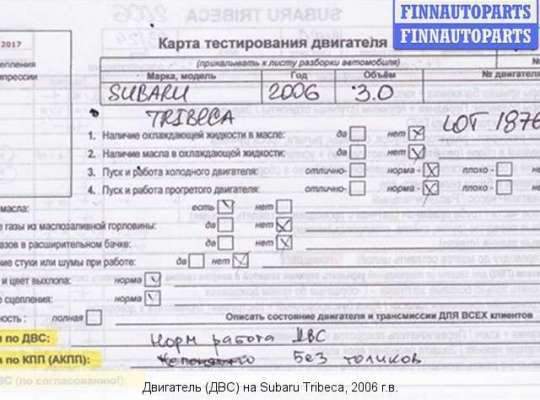 SUBARU TRIBECA 2006
FINNAUTOPARTS
FINNAUTOPARTS
2017
Карта тестирования двигателя
(прикалывать к листу разборки автомобиля)
епления
прессии
Марка, модель Год Объём № двигателя
SUBARU 2006 3.0
TRIBECA
LOT 1876
1. Наличие охлаждающей жидкости в масле: да нет
2. Наличие масла в охлаждающей жидкости: да нет
3. Пуск и работа холодного двигателя: отлично- норма - плохо -
4. Пуск и работа прогретого двигателя: отлично- норма - плохо -
масла: есть нет
е газы из маслозаливной горловины: да нет
азов в расширительном бачке: да нет
ние стуки или шумы при работе: да нет
и цвет выхлопа: норма
е сцепления: норма
ность : полная Описать состояние двигателя и трансмиссии ДЛЯ ВСЕХ клиентов
по ДВС: Норм работа ДВС
я по КПП (АКПП): без толчков
ВС (по согласованию!)
Двигатель (ДВС) на Subaru Tribeca, 2006 г.в.